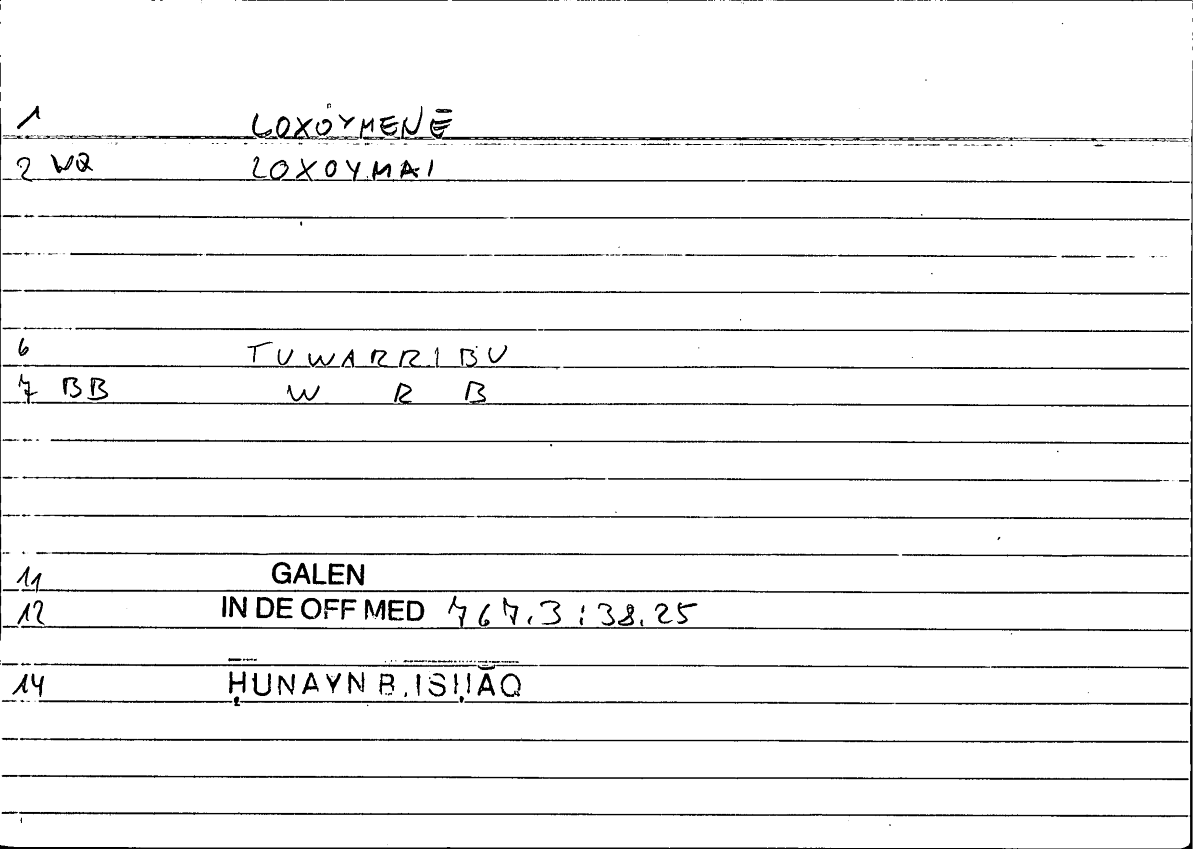 1 LOXOYMENĒ
2 WQ LOXOYMAI
6 TUWARRIBU
7 BB W R B
11 GALEN
12 IN DE OFF MED 767.3:38.25
14 ḤUNAYN B. ISḤĀQ